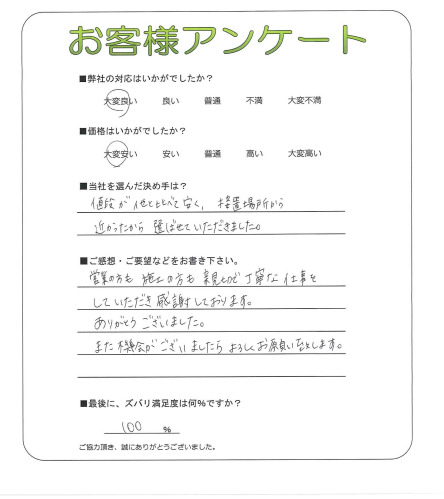 お客様アンケート
■弊社の対応はいかがでしたか？
大変良い 良い 普通 不満 大変不満
■価格はいかがでしたか？
大変安い 安い 普通 高い 大変高い
■当社を選んだ決め手は？
値段が他と比べて安く、設置場所から
近かったから 選ばせていただきました。
■ご感想・ご要望などをお書き下さい。
営業の方も 施工の方も 親切で丁寧な仕事を
していただき感謝しております。
ありがとうございました。
また機会がございましたら よろしくお願い致します。
■最後に、ズバリ満足度は何％ですか？
100 ％
ご協力頂き、誠にありがとうございました。